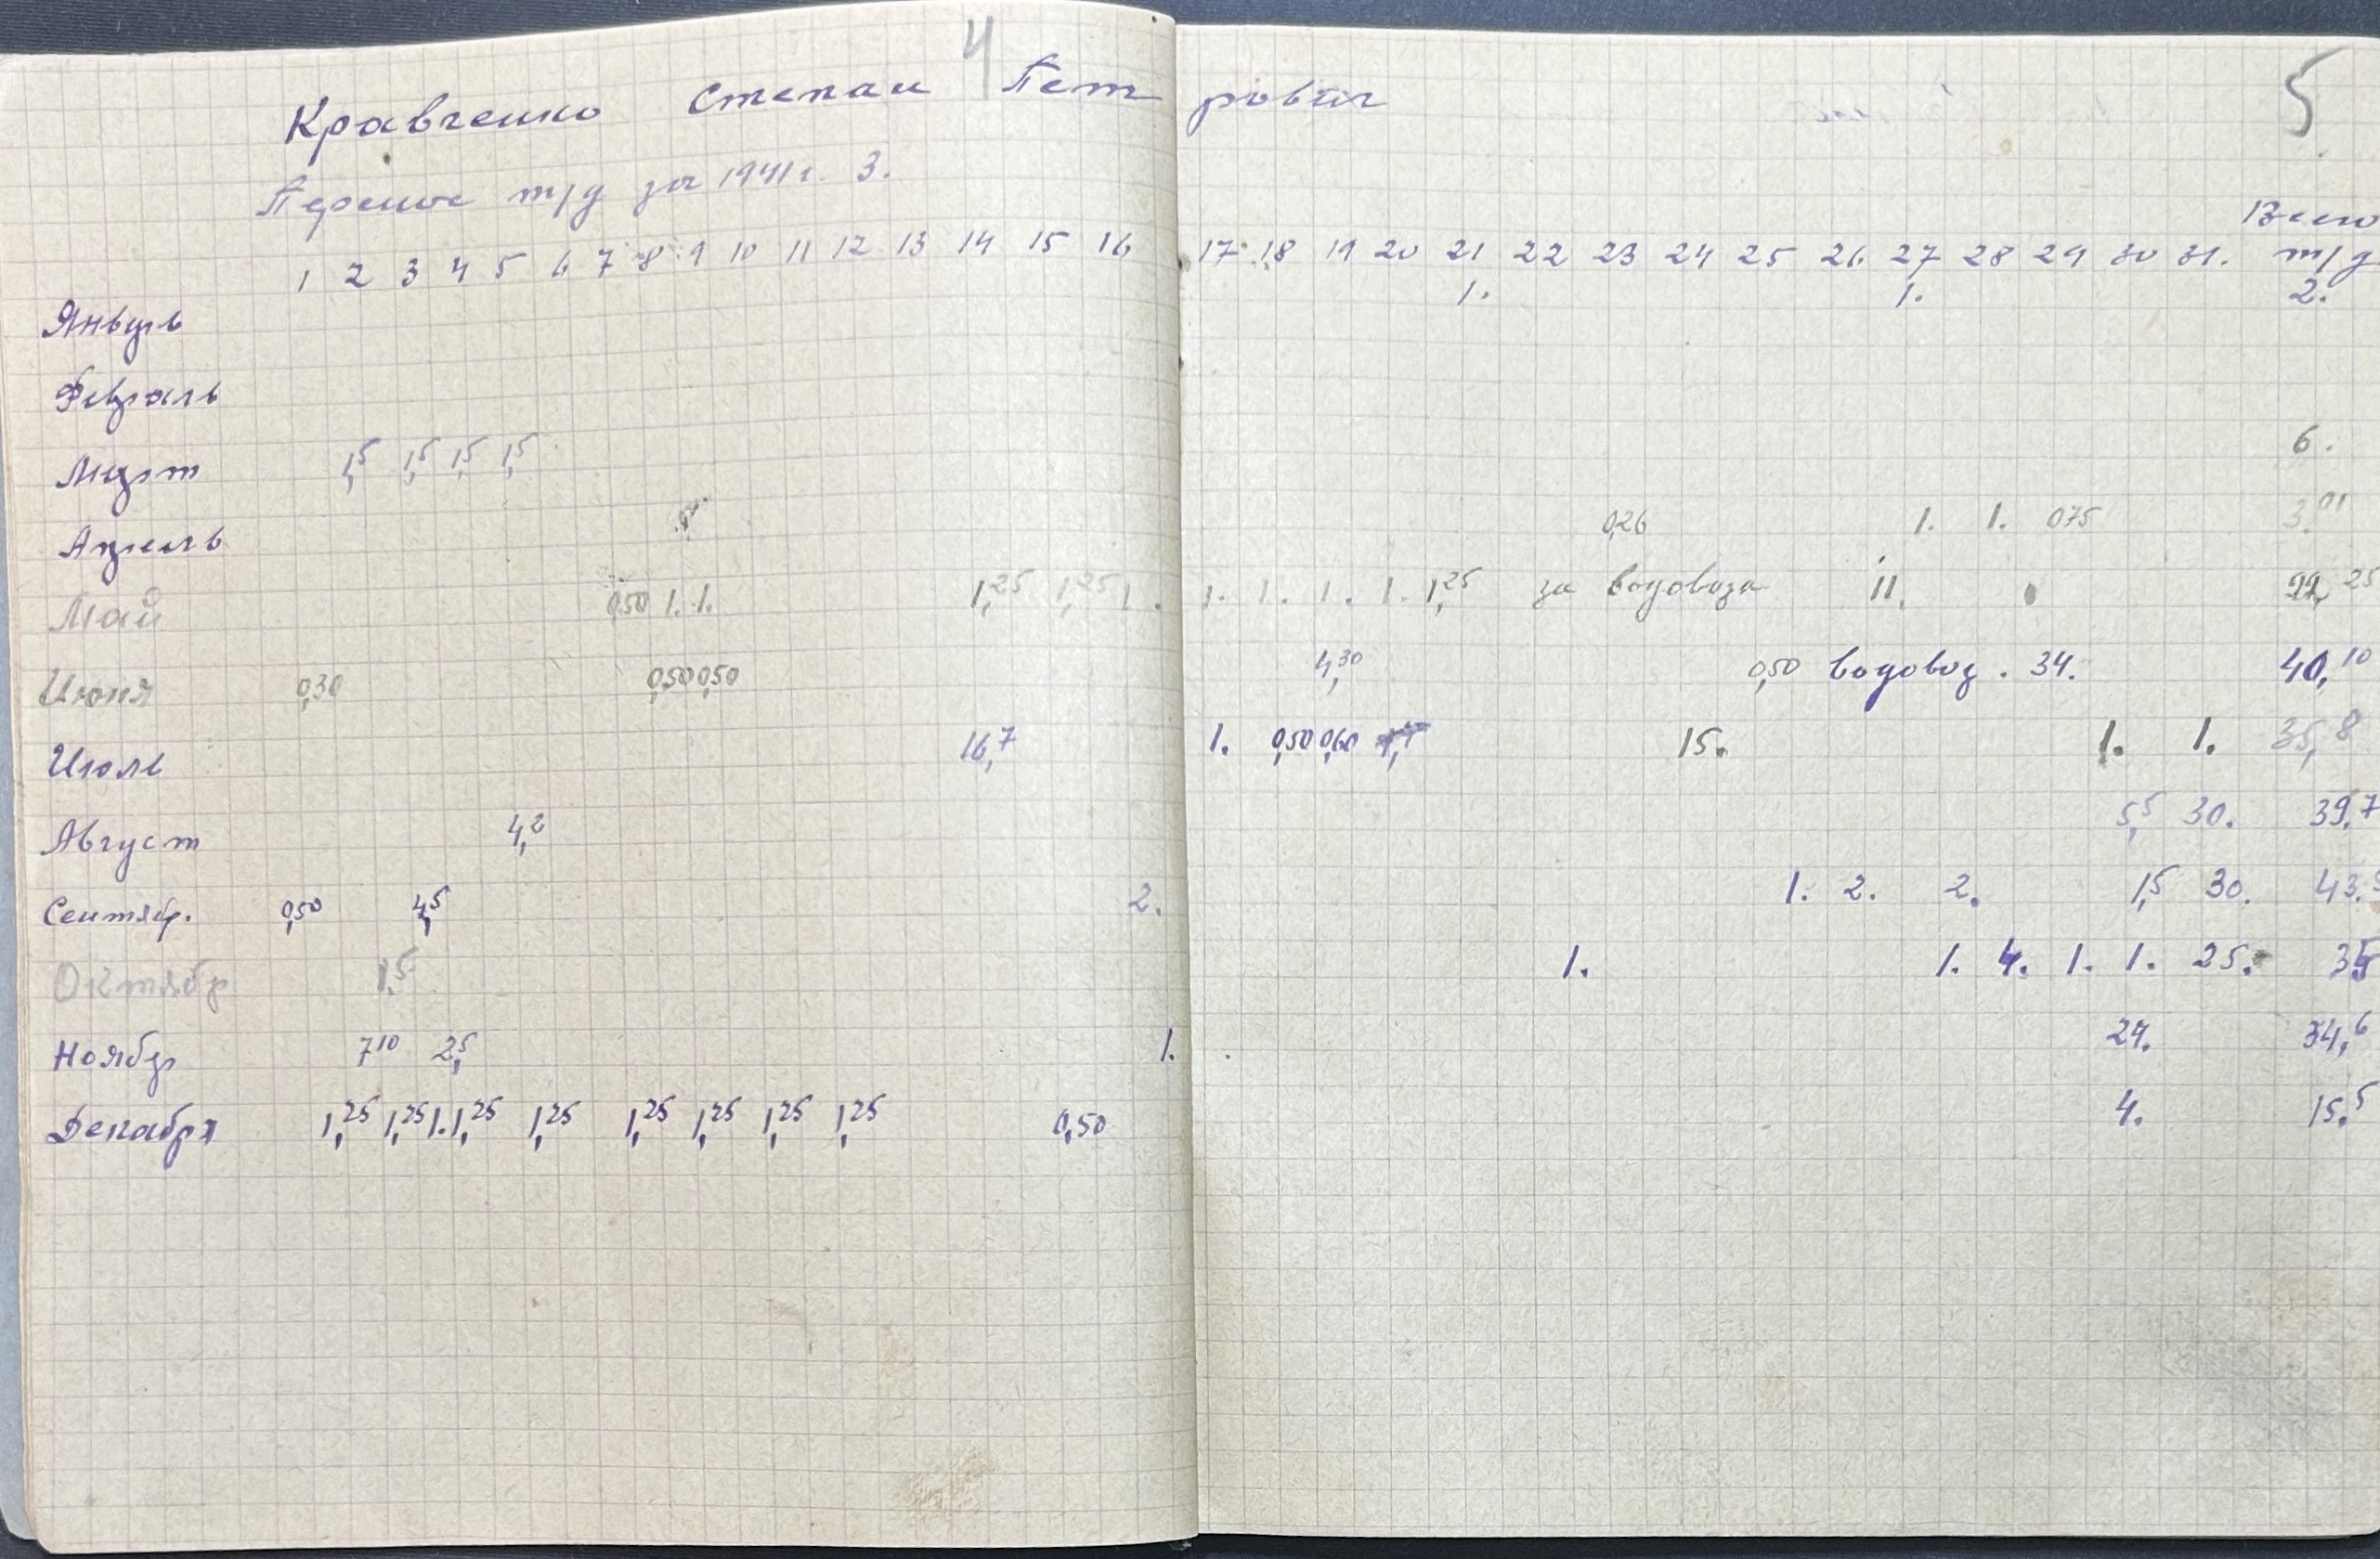 4
5
Кравченко Степан Петрович
Перенос т/д за 1941 г. 3.
Всего
1 2 3 4 5 6 7 8 9 10 11 12 13 14 15 16 17 18 19 20 21 22 23 24 25 26 27 28 29 30 31. т/д
Январь 1. 1. 2.
Февраль
Март 1,5 1,5 1,5 1,5 6.
Апрель 0,26 1. 1. 075 3.01
Май 0,50 1. 1. 1,25 1,25 1. 1. 1. 1. 1. 1,25 за водовоза 11. 22,25
Июня 0,30 0,50 0,50 4,30 0,50 водовоз. 34. 40,10
Июль 16,7 1. 0,50 0,60 15. 1. 1. 35,8
Август 4,2 5,5 30. 39,7
Сентябр. 0,50 4,5 2. 1. 2. 2. 1,5 30. 43.
Октябр 1,5 1. 1. 4. 1. 1. 25. 35
Ноябр 7 10 2,5 1. 24. 34,6
Декабря 1,25 1,25 1. 1,25 1,25 1,25 1,25 1,25 1,25 0,50 4. 15.5